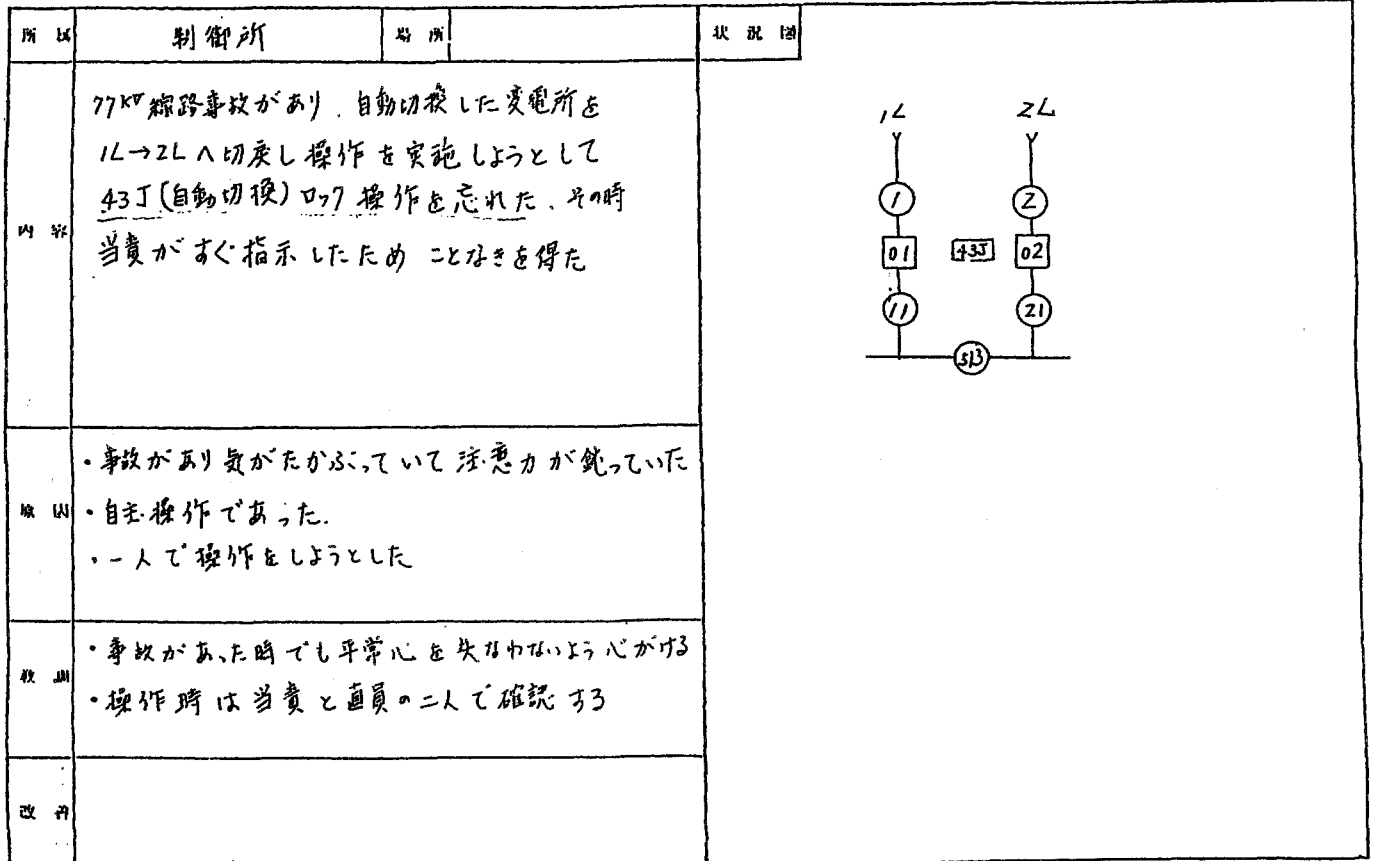 所属 制御所 場所 状況図
内容
77KV線路事故があり、自動切換した変電所を
1L→2Lへ切戻し操作を実施しようとして
43J(自動切換)ロック操作を忘れた、その時
当責がすぐ指示したため ことなきを得た
原因
・事故があり気がたかぶっていて注意力が鈍っていた
・自主操作であった.
・一人で操作をしようとした
教訓
・事故があった時でも平常心を失なわないよう心がける
・操作時は当責と直員の二人で確認する
改善
1L 2L
1 2
01 43J 02
11 21
513